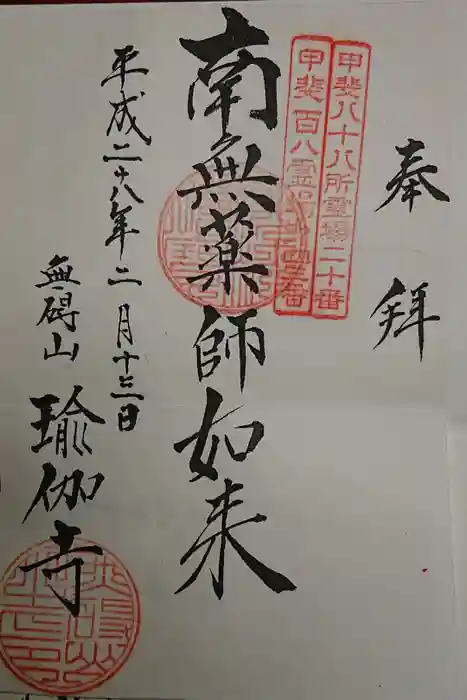 奉拜
甲斐八十八所霊場二十番
甲斐百八霊場
南無薬師如来
平成二十八年二月十三日
無碍山
瑜伽寺